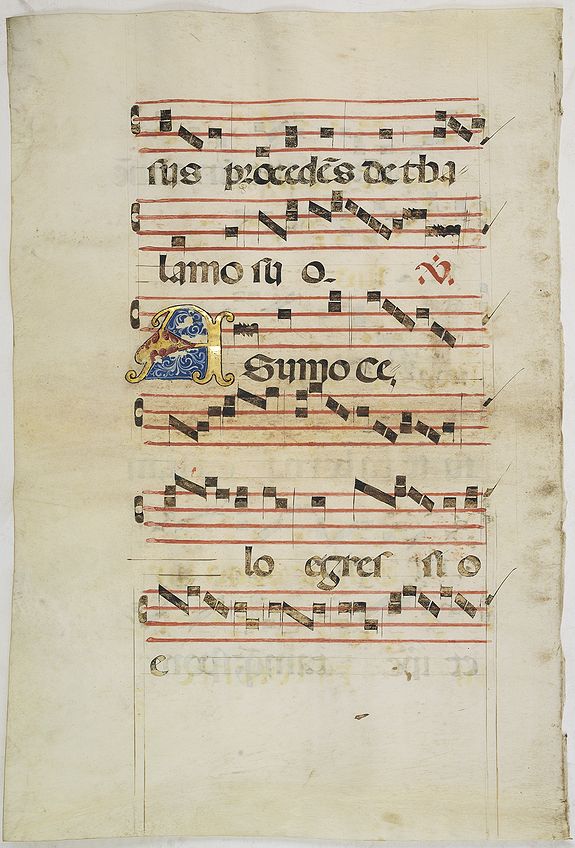 sus procedēs de tha-
lamo su o. ℣.
A Sumo ce,
lo egres si o
e